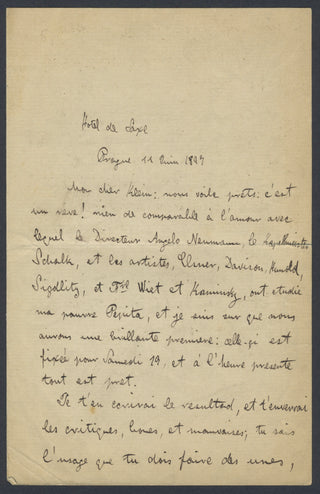 Hotel de Saxe
Prague 11 Juin 1897
Mon cher Klein; nous voila prets: c'est
un reve! rien de comparable à l'amour avec
lequel le Directeur Angelo Neumann, le Kapellmeister
Schalk, et les artistes, Elsner, Davison,
Sigdlitz, et Frl Wiet et Kaminsky, ont etudié
ma pauvre Pepita, et je suis sur que nous
aurons une brillante premiere: celle-çi est
fixée pour Samedi 19, et à l'heure presente
tout est pret.
Je t'en ecrirai le resultad, et t'enverrai
les critiques, bones, et mauvaises; tu sais
l'usage que tu dois faire des unes,